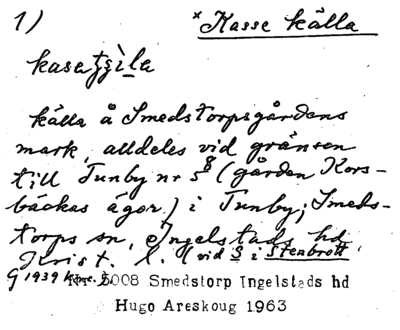 1) * Kasse källa
källa å Smedstorpsgårdens
mark, alldeles vid gränsen
till Tunby nr 5 § (gården Kors-
bäckas ägor) i Tunby; Smeds-
torps sn, Ingelstads hd,
Krist. l. (vid § i Stenbrott
G 1939
Nr. 5008 Smedstorp Ingelstads hd
Hugo Areskoug 1963